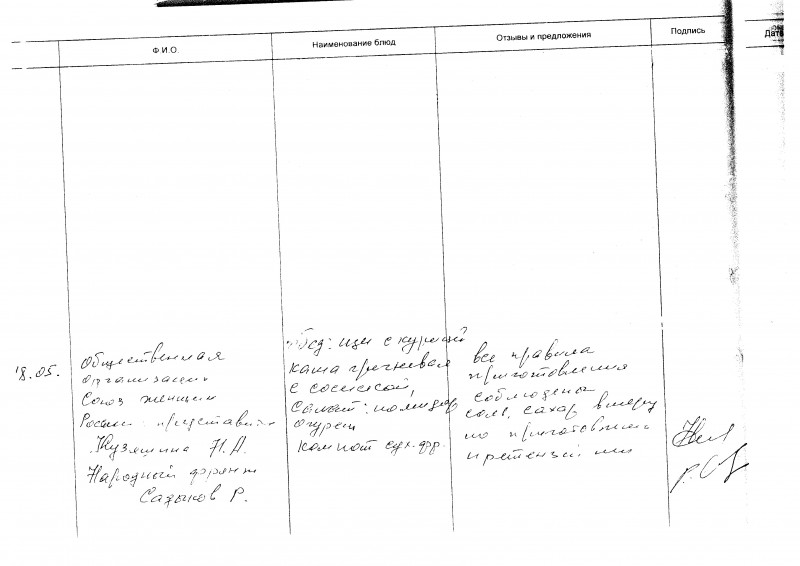 Ф.И.О.
Наименование блюд
Отзывы и предложения
Подпись
Дата
18.05.
Общественная
организация
Союз женщин
России: представитель
Кузяшина Н.А.
Народный фронт
Садыков Р.
Обед: щи с курицей
каша гречневая
с сосиской,
Салат: помидор
огурец
компот сух.фр.
все правила
приготовления
соблюдены
соль, сахар в меру
по приготовлению
претензий нет